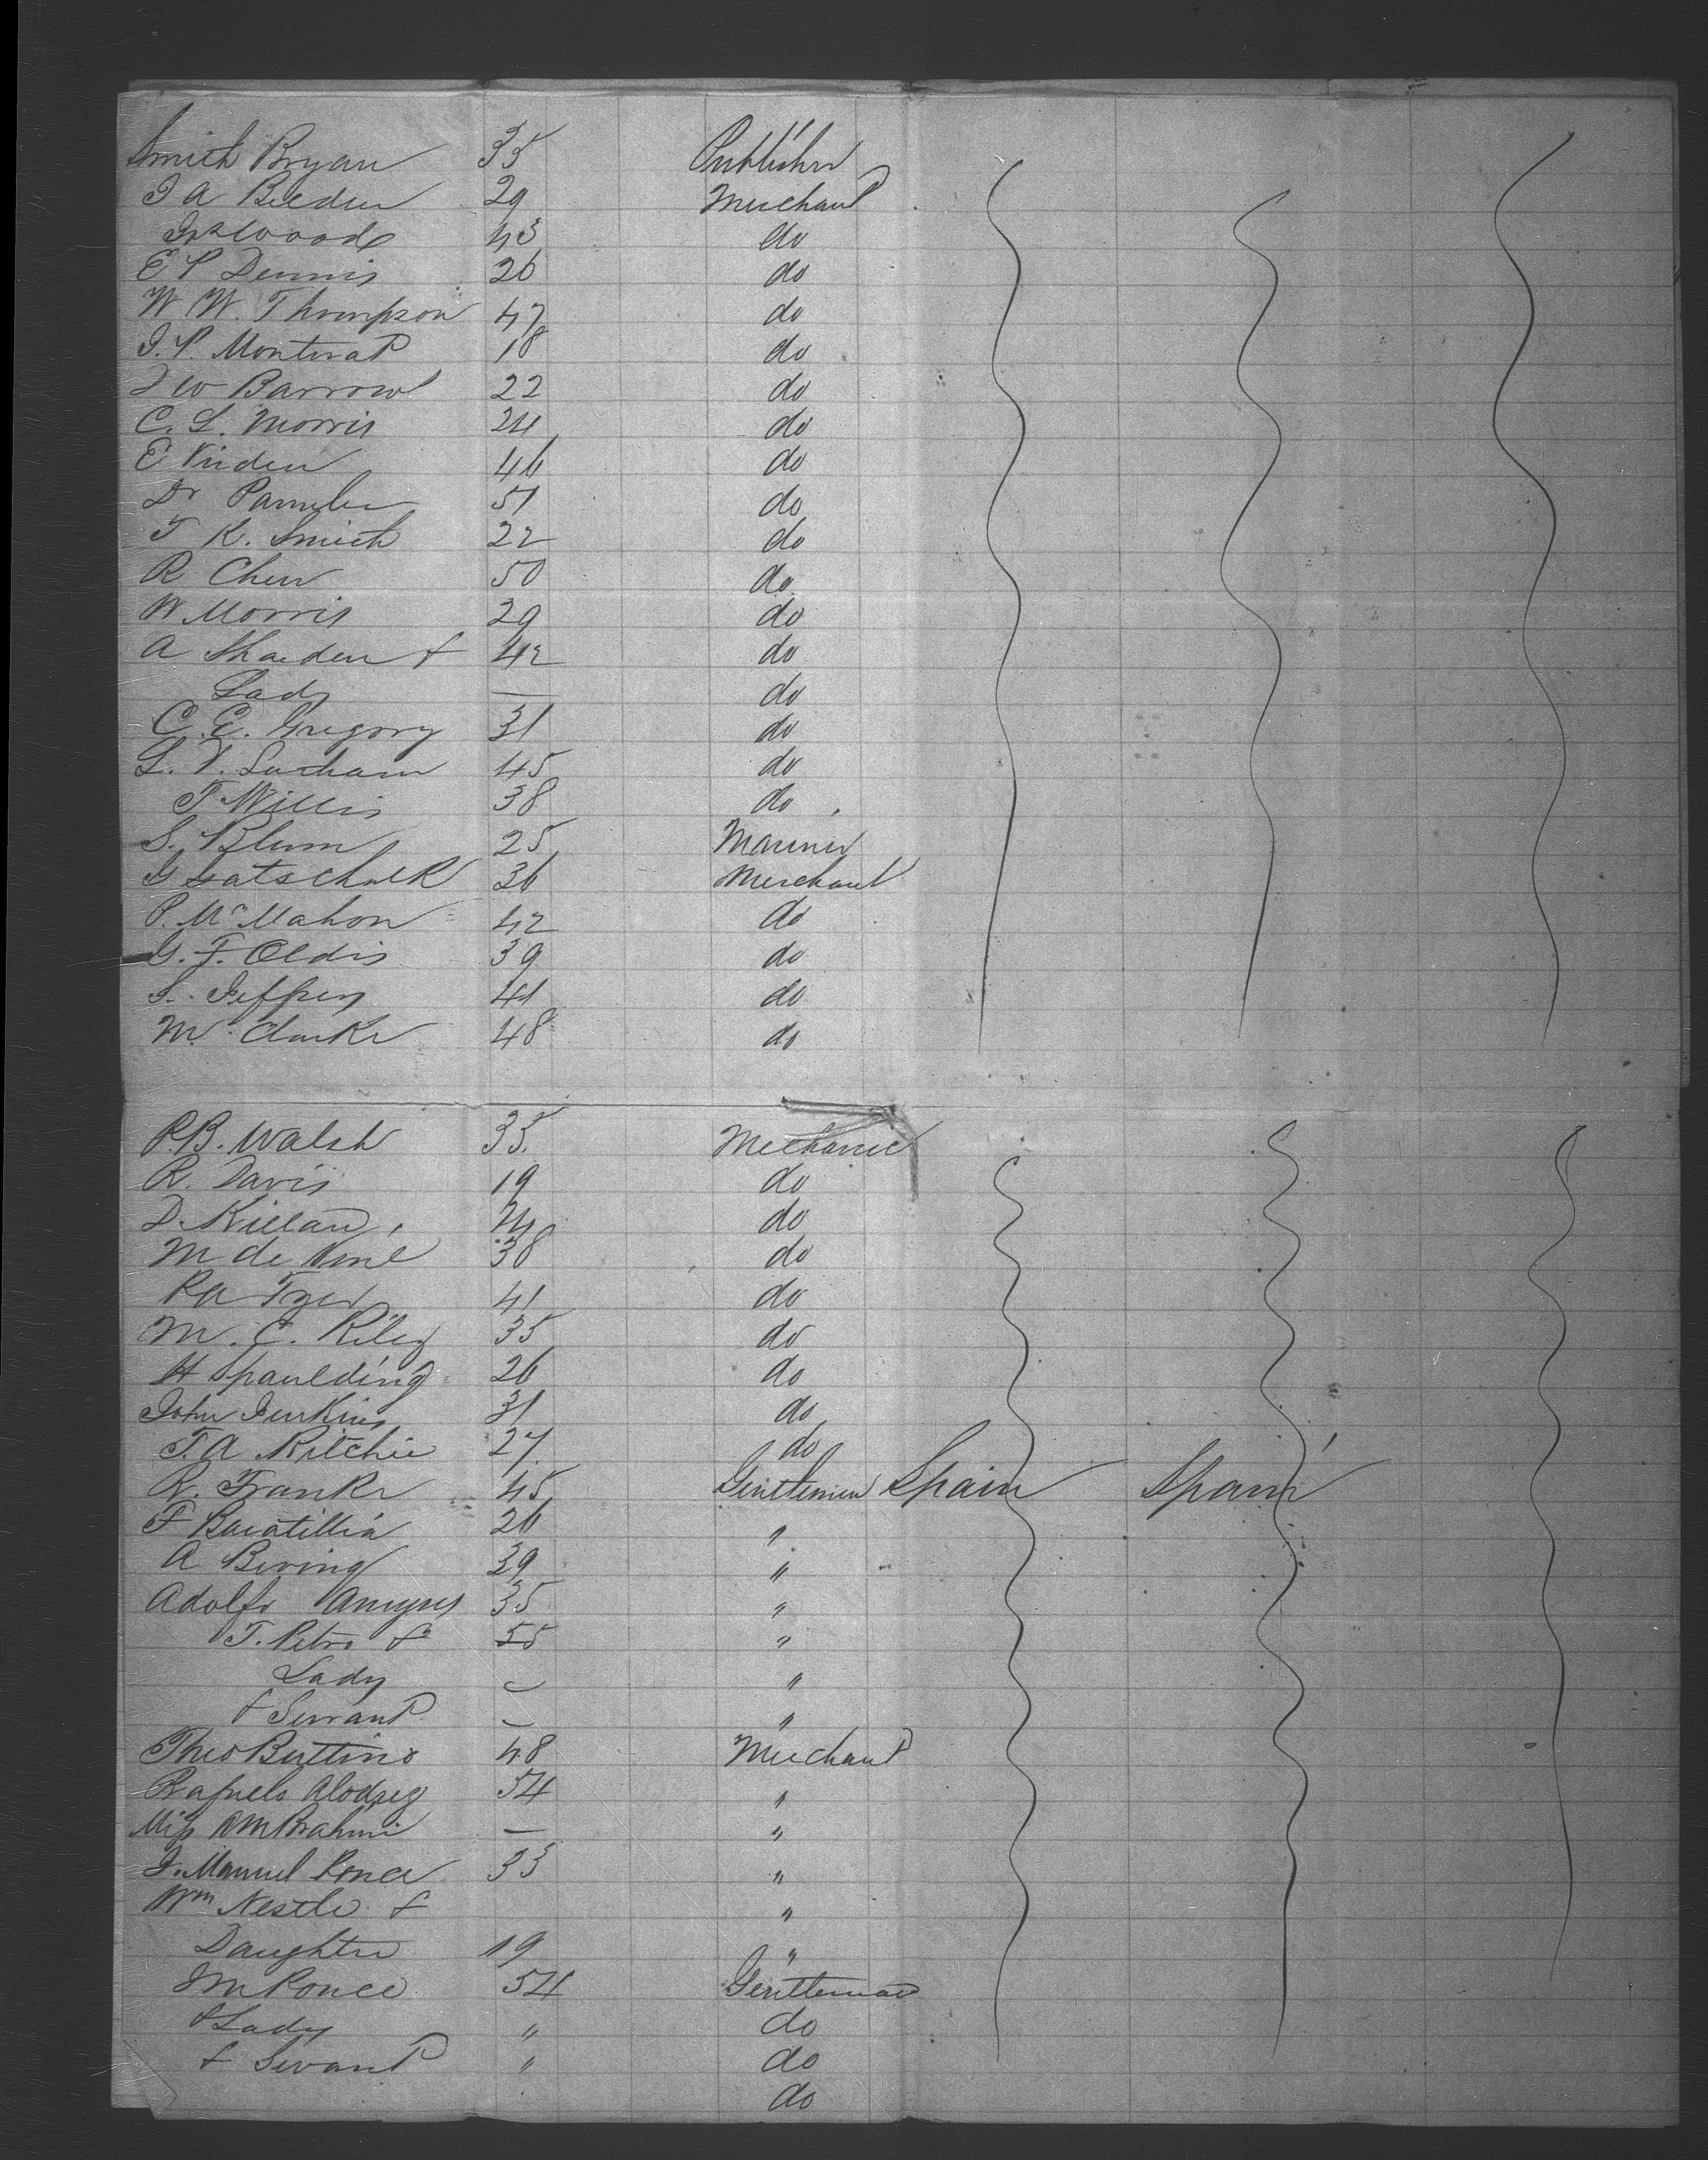 Smith Bryan 35 Publisher
J A Beeden 29 Merchant
Jas Woods 43 do
E P Dennis 26 do
W W. Thompson 47 do
J. P. Montserat 18 do
J W Barrow 22 do
C. L. Morris 24 do
E Virden 46 do
Dr Parmlee 51 do
T K. Smith 22 do
R Chew 50 do
W Morris 29 do
A Shaeden & 42 do
Lady — do
C. E. Gregory 31 do
L. V. 45 do
T Willis 38 do
S. Blum 25 Mariner
G Gatschalk 36 Merchant
P. McMahon 42 do
G. F. Oldis 39 do
S. Jeffrey 41 do
M. Clarke 48 do
P. B. Walsh 35 Mechanic
R. Davis 19 do
D. Killan 24 do
M de Vine 38 do
41 do
M. C. Riley 35 do
H Spaulding 26 do
John Jenkins 31 do
T. A Ritchie 27 do
R. Franke 45 Gentlemen Spain Spain
F 26 "
A Bering 39 "
Adolfo 35 "
T. Petro & 55 "
Lady — "
& Servant — "
Theo Buttino 48 Merchant
54 "
Miss — "
J. Manuel Ponce 33 "
Wm Nestle & "
Daughter 19 "
J M Ponce 54 Gentleman
& Lady " do
& Servant " do
do